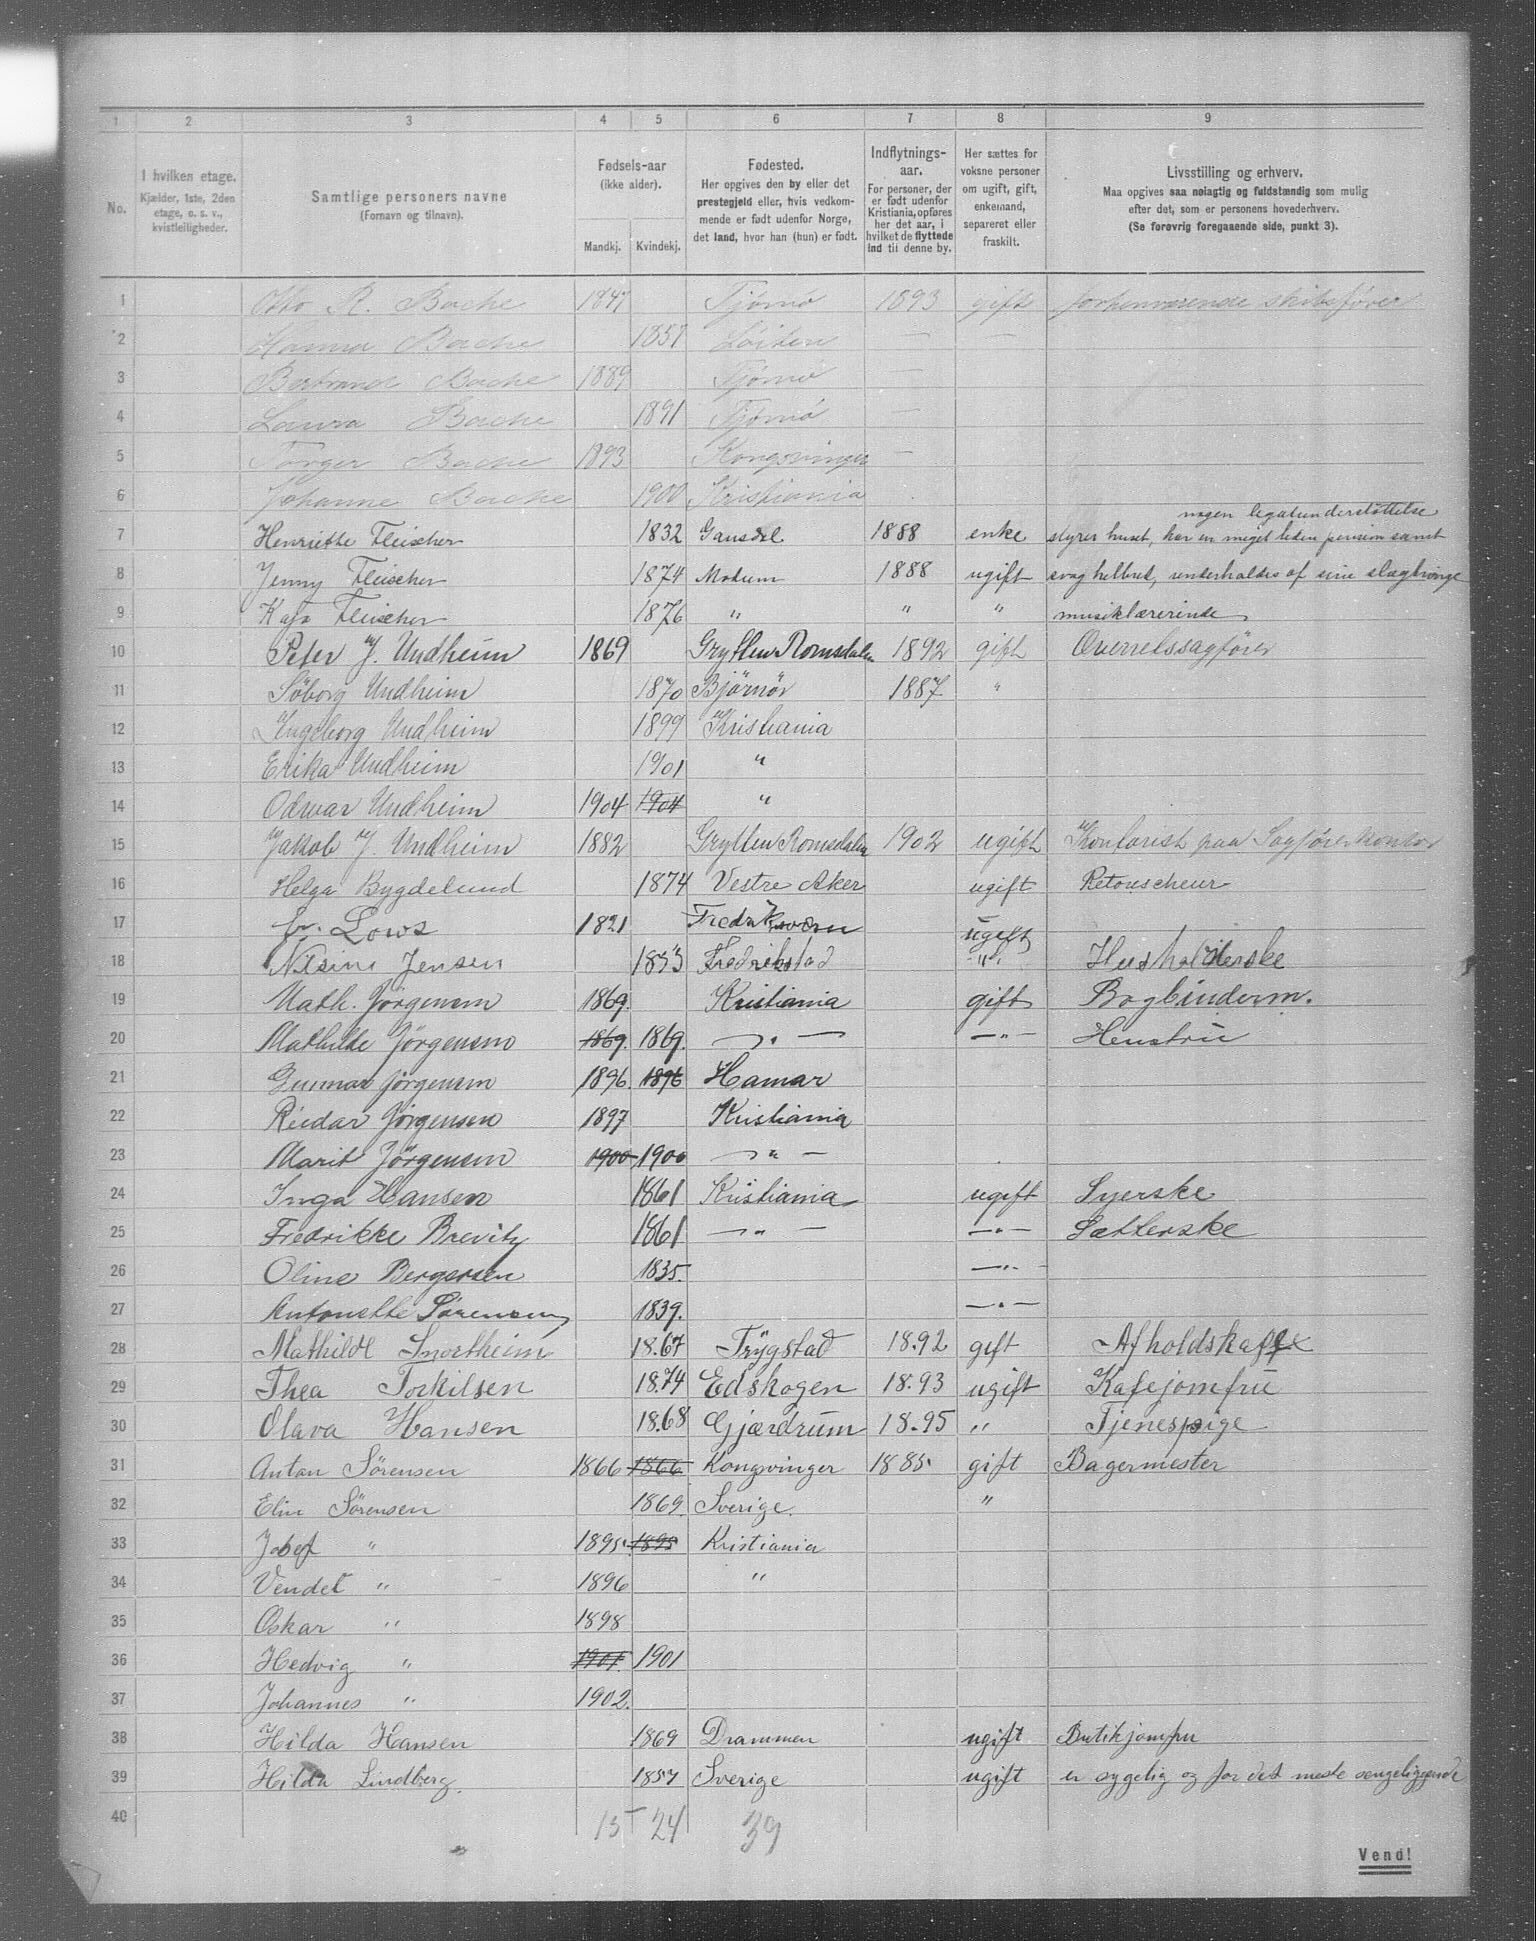 1 2 3 4 5 6 7 8 9
No.
I hvilken etage.
Kjælder, 1ste, 2den
etage, o. s. v.,
kvistleiligheder.
Samtlige personers navne
(Fornavn og tilnavn).
Fødsels-aar
(ikke alder).
Mandkj. Kvindekj.
Fødested.
Her opgives den by eller det
prestegjeld eller, hvis vedkom-
mende er født udenfor Norge,
det land, hvor han (hun) er født.
Indflytnings-
aar.
For personer, der
er født udenfor
Kristiania, opføres
her det aar, i
hvilket de flyttede
ind til denne by.
Her sættes for
voksne personer
om ugift, gift,
enkemand,
separeret eller
fraskilt.
Livsstilling og erhverv.
Maa opgives saa nøiagtig og fuldstændig som mulig
efter det, som er personens hovederhverv.
(Se forøvrig foregaaende side, punkt 3).
1 Otto R. Bache 1847 Tjømø 1893 gift forhenværende skibsfører
2 Hanna Bache 1857 Löiten — —
3 Bertrand Bache 1889 Tjømø —
4 Laura Bache 1891 Tjømø —
5 Torger Bache 1893 Kongsvinger —
6 Johanne Bache 1900 Kristiania
nogen legatunderstøttelse
7 Henriette Fleischer 1832 Gausdal 1888 enke styrer huset, har en meget liden pension samt
8 Jenny Fleischer 1874 Modum 1888 ugift svag helbred, underholdes af sine slægtninge
9 Kaja Fleischer 1876 " " " musiklærerinde
10 Peter J. Undheim 1869 Grytten Romsdalen 1892 gift Overretssagfører
11 Söborg Undheim 1870 Bjørnør 1887 "
12 Ingeborg Undheim 1899 Kristiania
13 Erika Undheim 1901 "
14 Odvar Undheim 1904 1904 "
15 Jakob J. Undheim 1882 Grytten Romsdalen 1902 ugift Kontorist paa Sagførerkontor
16 Helga Bygdelund 1874 Vestre Aker ugift Retouscheur
17 fr. Lows 1821 Fredriksværn ugift
18 Nilsine Jensen 1853 Fredrikstad " Husholderske
19 Math. Jörgensen 1869. Kristiania gift Bogbinderm.
20 Mathilde Jörgensen 1869. 1869. — " — — " — Hustru
21 Gunnar Jörgensen 1896. 1896 Hamar
22 Reidar Jörgensen 1897 Kristiania
23 Marit Jörgensen 1900 1900 — " —
24 Inga Hansen 1861 Kristiania ugift Syerske
25 Fredrikke Brevitz 1861 — " — — " — Sætterske
26 Oline Bergersen 1835. — " —
27 Antonette Sörensen 1839. — " —
28 Mathilde Snortheim 18.67 Trygstad 18.92 gift Afholdskaffe
29 Thea Torkilsen 18.74 Edskogen 18.93 ugift Kafejomfru
30 Olava Hansen 18.68 Gjærdrum 18.95 " Tjenespige
31 Anton Sørensen 1866 1866 Kongsvinger 1885. gift Bagermester
32 Elin Sørensen 1869. Sverige. "
33 Josef " 1895. 1895 Kristiania
34 Vendel " 1896 "
35 Oskar " 1898
36 Hedvig " 1901. 1901
37 Johannes " 1902.
38 Hilda Hansen 1869 Drammen ugift Butikjomfru
39 Hilda Lindberg. 1857 Sverige ugift er sygelig og for det meste sengeliggende
40 15 24 39
Vend!